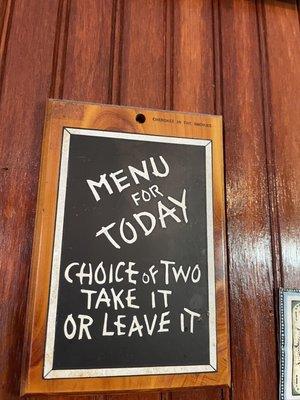 CHEROKEE IN THE SMOKIES
MENU
FOR
TODAY
CHOICE OF TWO
TAKE IT
OR LEAVE IT